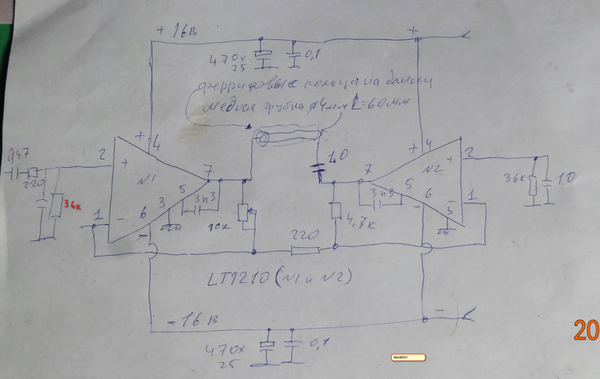 +16В
+
470х
25
0,1
ферритовые кольца на балки
медная трубка ф4мм L=60мм
0,47
220
36к
2
+
4
N1
7
5
6
3
1
-
3н3
10к
1,0
220
4,7к
7
3н3
5
6
3
4
+
N2
2
1
-
36к
1,0
LT1210 (N1 и N2)
-16В
-
470х
25
0,1
20